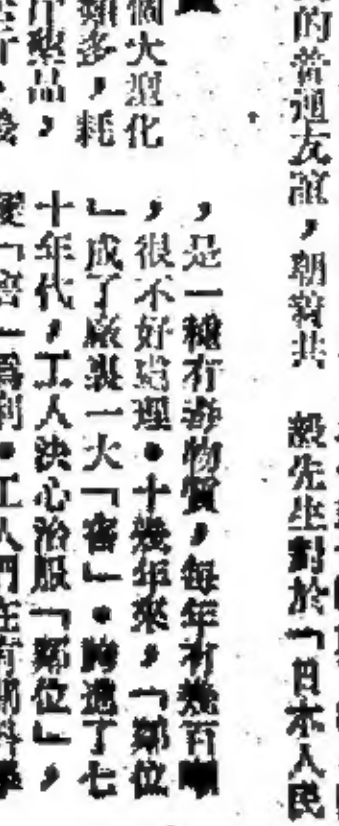 的普通友誼，朝着共
毅先生對於「日本人民
個大型化
類多，耗
品，
，是一種有毒物質，每年有幾百噸
，很不好處理。十幾年來，「鄰位
」成了廠裏一大「害」。跨進了七
十年代，工人決心治服「鄰位」，
變「害」爲利。工人們在有關科學